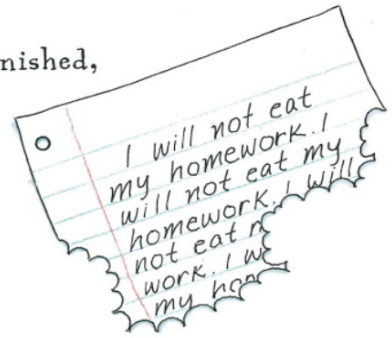 nished,
I will not eat
my homework. I
will not eat my
homework. I will
not eat
work. I
my